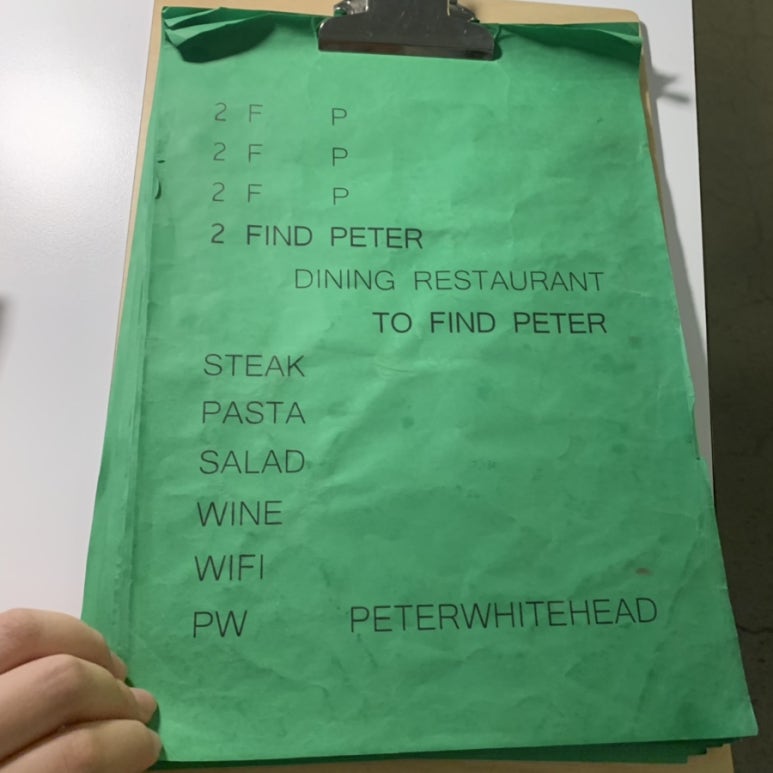 2 F P
2 F P
2 F P
2 FIND PETER
DINING RESTAURANT
TO FIND PETER
STEAK
PASTA
SALAD
WINE
WIFI
PW PETERWHITEHEAD